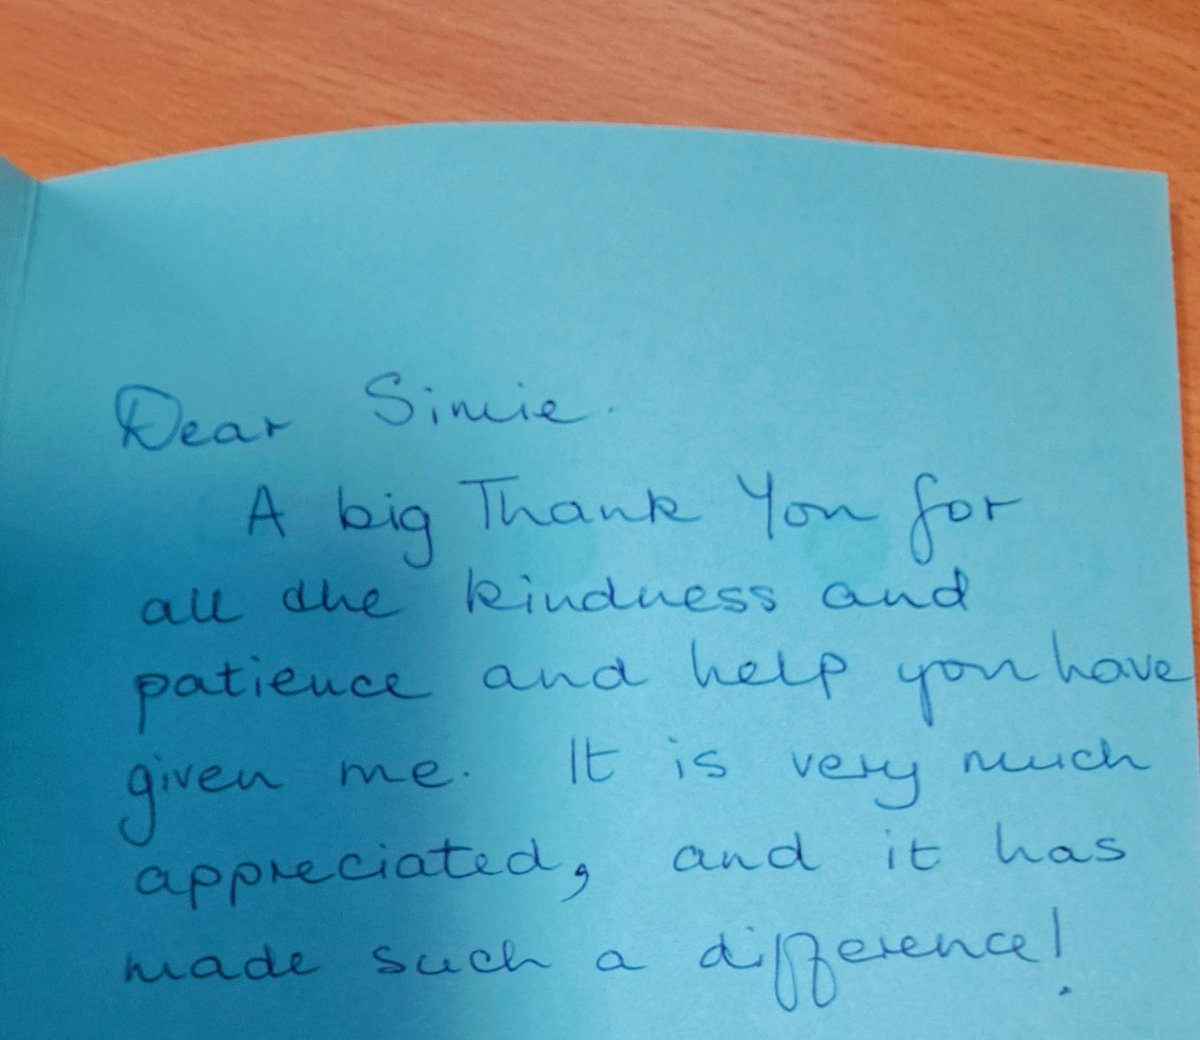 Dear Simie.
A big Thank You for
all the kindness and
patience and help you have
given me. It is very much
appreciated, and it has
made such a difference!